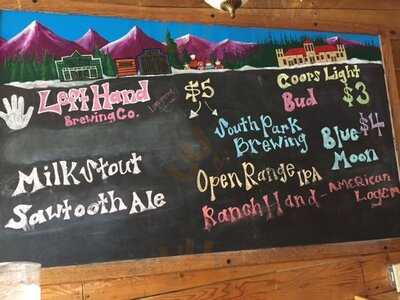 Left Hand
Brewing Co.
$5
Milk Stout
Sawtooth Ale
Coors Light
Bud
$3
South Park
Brewing
Blue
Moon
$4
Open Range IPA
Ranch Hand - American
Lager